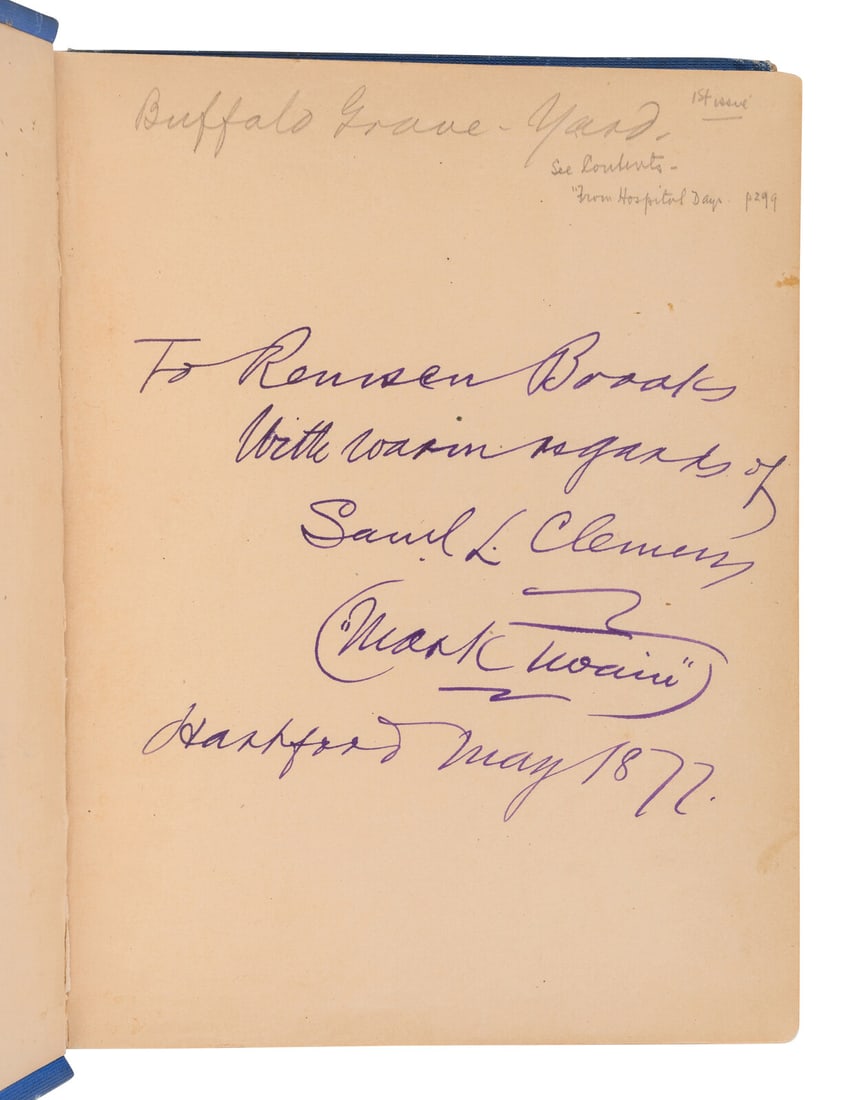 Buffalo Grave-Yard.
1st issue
See Contents -
"From Hospital Days. p299
To Remsen Brooks
With warm regards of
Saml. L. Clemens
("Mark Twain")
Hartford May 1877.